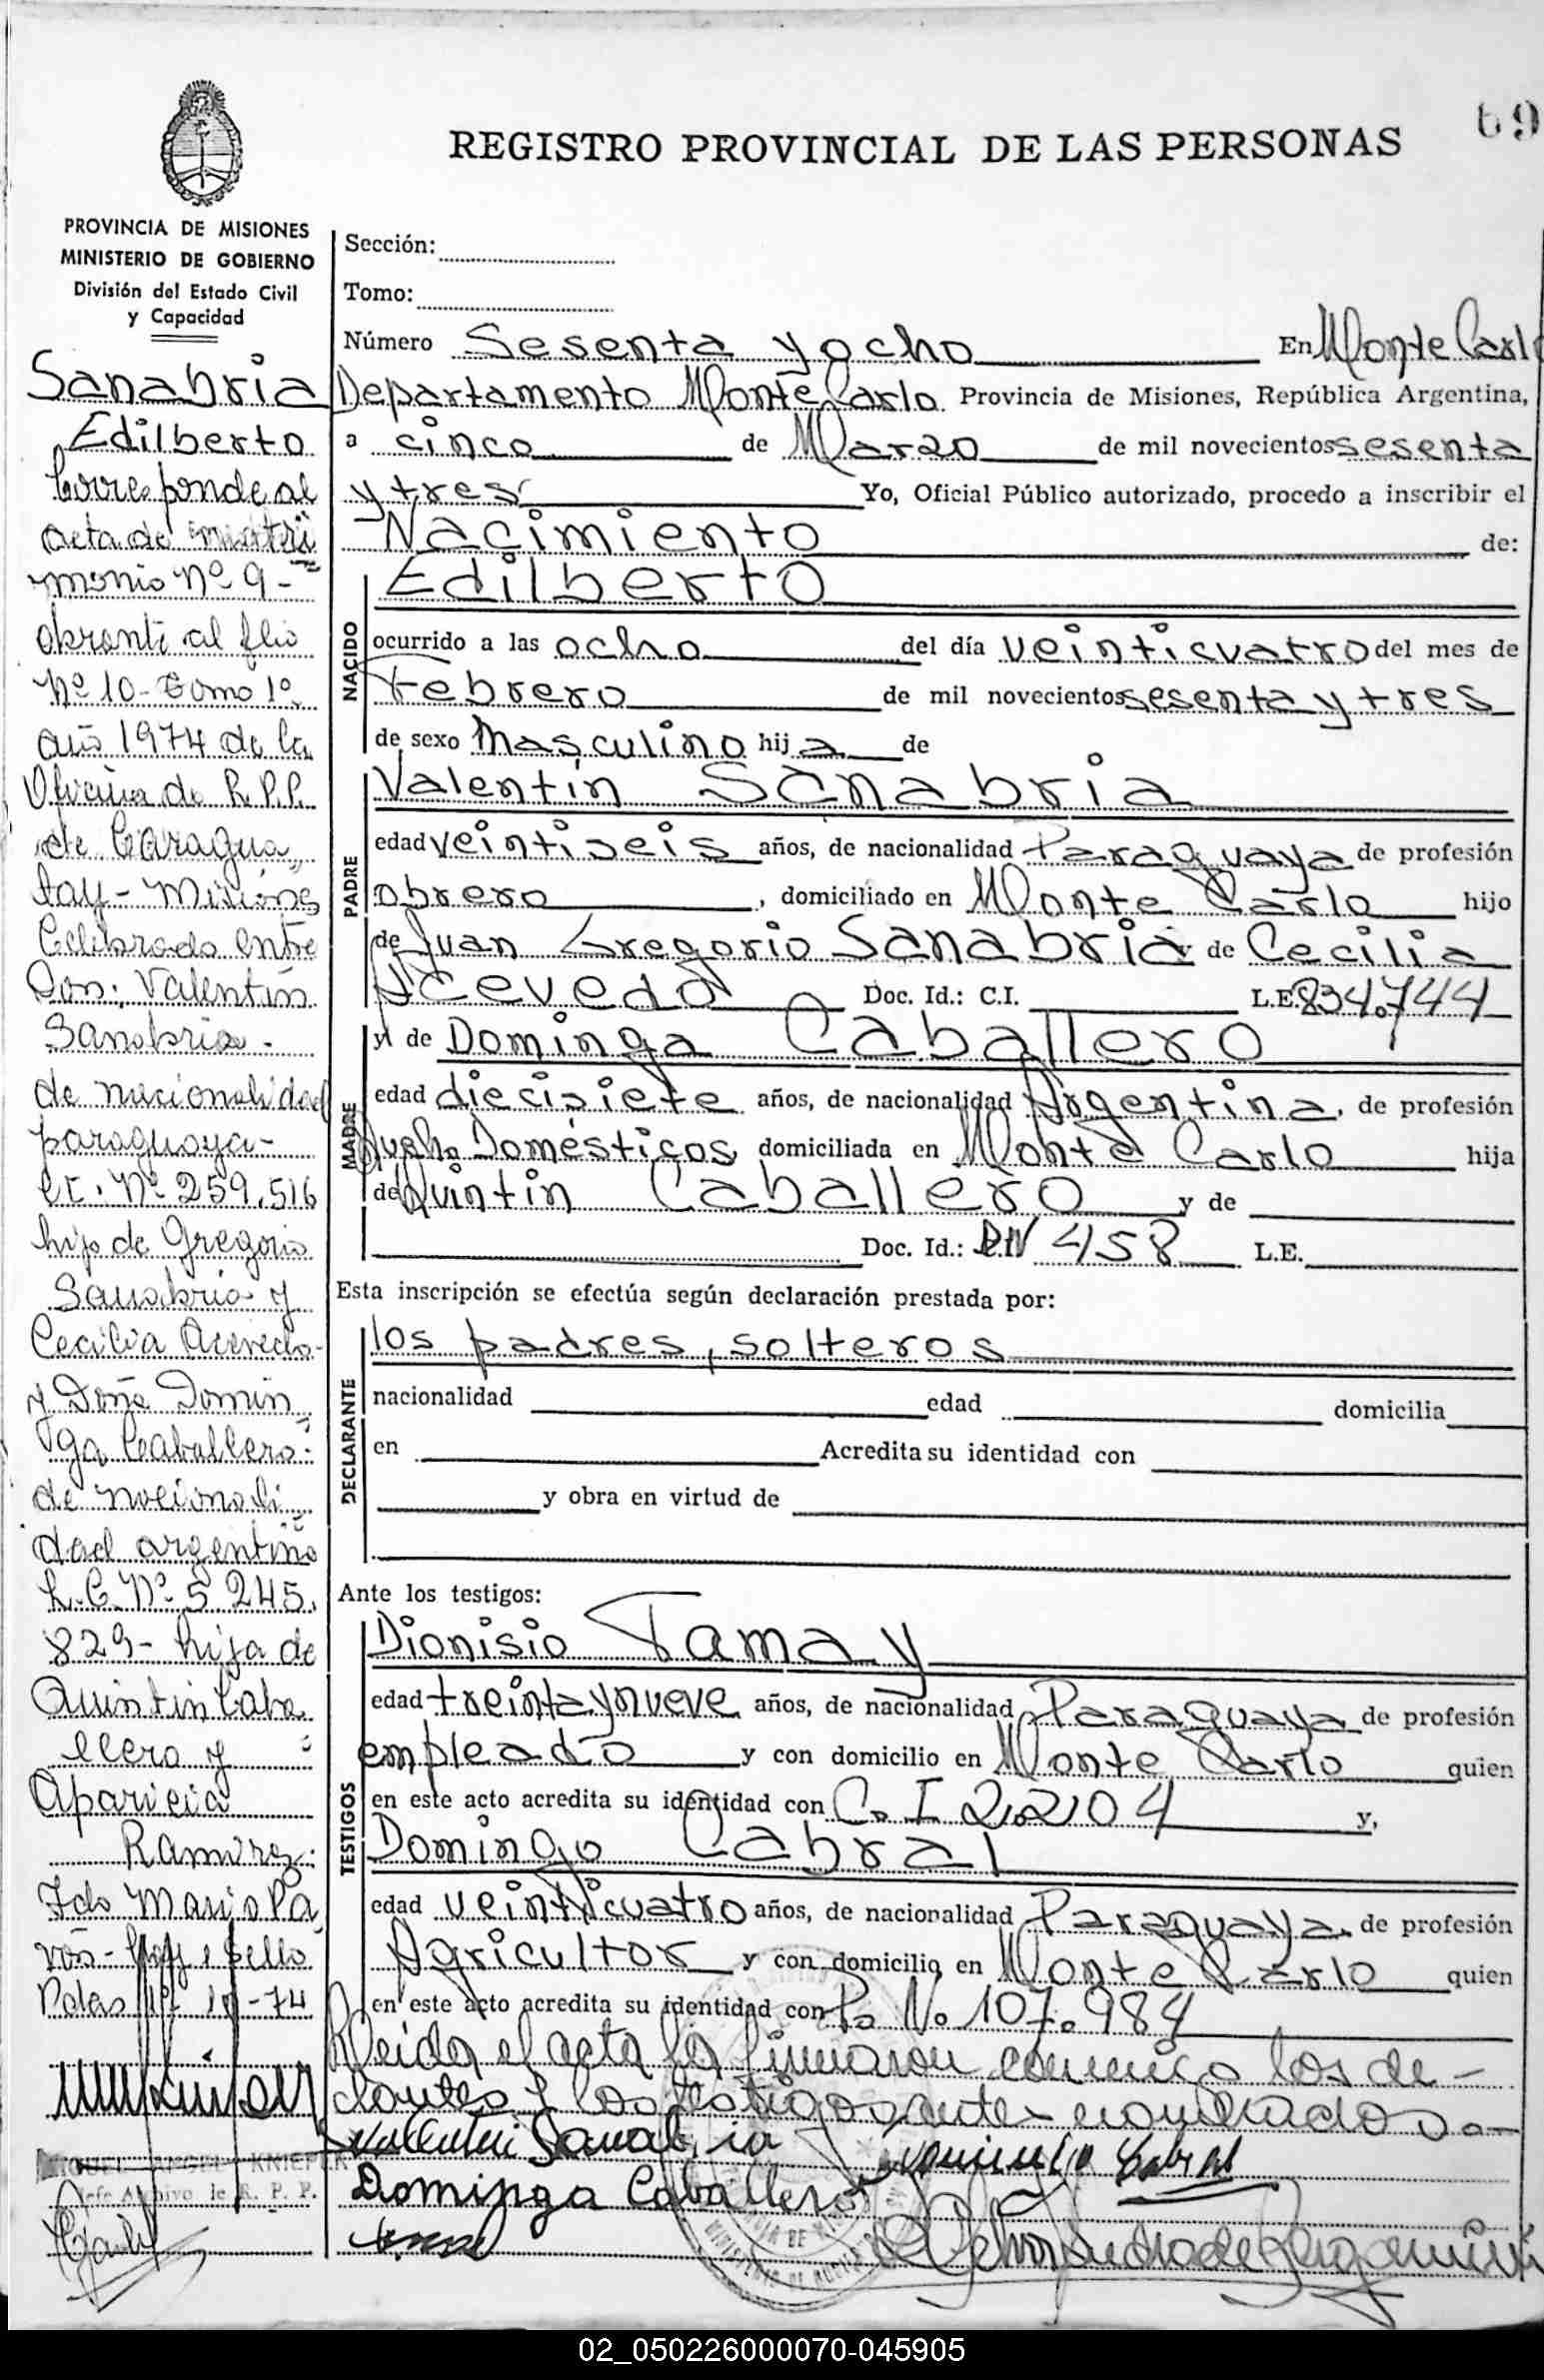 69
REGISTRO PROVINCIAL DE LAS PERSONAS
PROVINCIA DE MISIONES
MINISTERIO DE GOBIERNO
División del Estado Civil
y Capacidad
Sanabria
Edilberto
Corresponde al
acta de matri
monio Nº 9-
obrante al flio
Nº 10- Tomo 1º
año 1974 de la
Oficina de R.P.P.
de Caragua
tay- Misiones
Celebrado entre
Don: Valentín
Sanabria-
de nacionalidad
paraguaya-
C.I. Nº 259.516
hijo de Gregorio
Sanabria y
Cecilia Acevedo-
y Doña Domin
ga Caballero:
de nacionali
dad argentina
L.C. Nº 5 245.
829- hija de
Quintin Caba
llero y
Aparicia
Ramirez:
Fdo Mario Pa
Sello
Pdas 10-74
MIGUEL ANGEL KNIEPER
Jefe Archivo de R. P. P.
Sección:
Tomo:
Número Sesenta y ocho En Monte Carlo
Departamento Monte Carlo Provincia de Misiones, República Argentina,
a cinco de Marzo de mil novecientos sesenta
y tres Yo, Oficial Público autorizado, procedo a inscribir el
Nacimiento de:
NACIDO
Edilberto
ocurrido a las ocho del día veinticuatro del mes de
Febrero de mil novecientos sesenta y tres
de sexo Masculino hija de
PADRE
Valentín Sanabria
edad veintiseis años, de nacionalidad Paraguaya de profesión
obrero, domiciliado en Monte Carlo hijo
de Juan Gregorio Sanabria y de Cecilia
Acevedo Doc. Id.: C.I. L.E. 834.744
MADRE
y de Dominga Caballero
edad diecisiete años, de nacionalidad Argentina, de profesión
Domésticos domiciliada en Monte Carlo hija
de Quintin Caballero y de
Doc. Id.: 458 L.E.
Esta inscripción se efectúa según declaración prestada por:
DECLARANTE
los padres, solteros
nacionalidad edad domicilia
en Acredita su identidad con
y obra en virtud de
Ante los testigos:
TESTIGOS
Dionisio Tamay
edad treinta y nueve años, de nacionalidad Paraguaya de profesión
empleado y con domicilio en Monte Carlo quien
en este acto acredita su identidad con C. I 2.204 y,
Domingo Cabral
edad veinticuatro años, de nacionalidad Paraguaya de profesión
Agricultor y con domicilio en Monte Carlo quien
en este acto acredita su identidad con P. No. 107.984
Leida el acta la firmaron conmigo los de-
clantes y los testigos antes nombrados.-
Valentin Sanabria
Domingo Cabral
Dominga Caballero
02_050226000070-045905